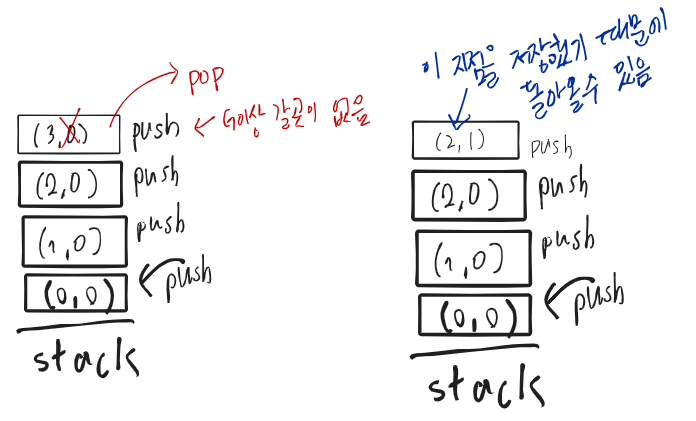 pop
(3,0) push ← 더이상 갈곳이 없음
(2,0) push
(1,0) push
(0,0) push
stack
이 지점을 저장했기 때문에
돌아올수 있음
(2,1) push
(2,0) push
(1,0) push
(0,0) push
stack